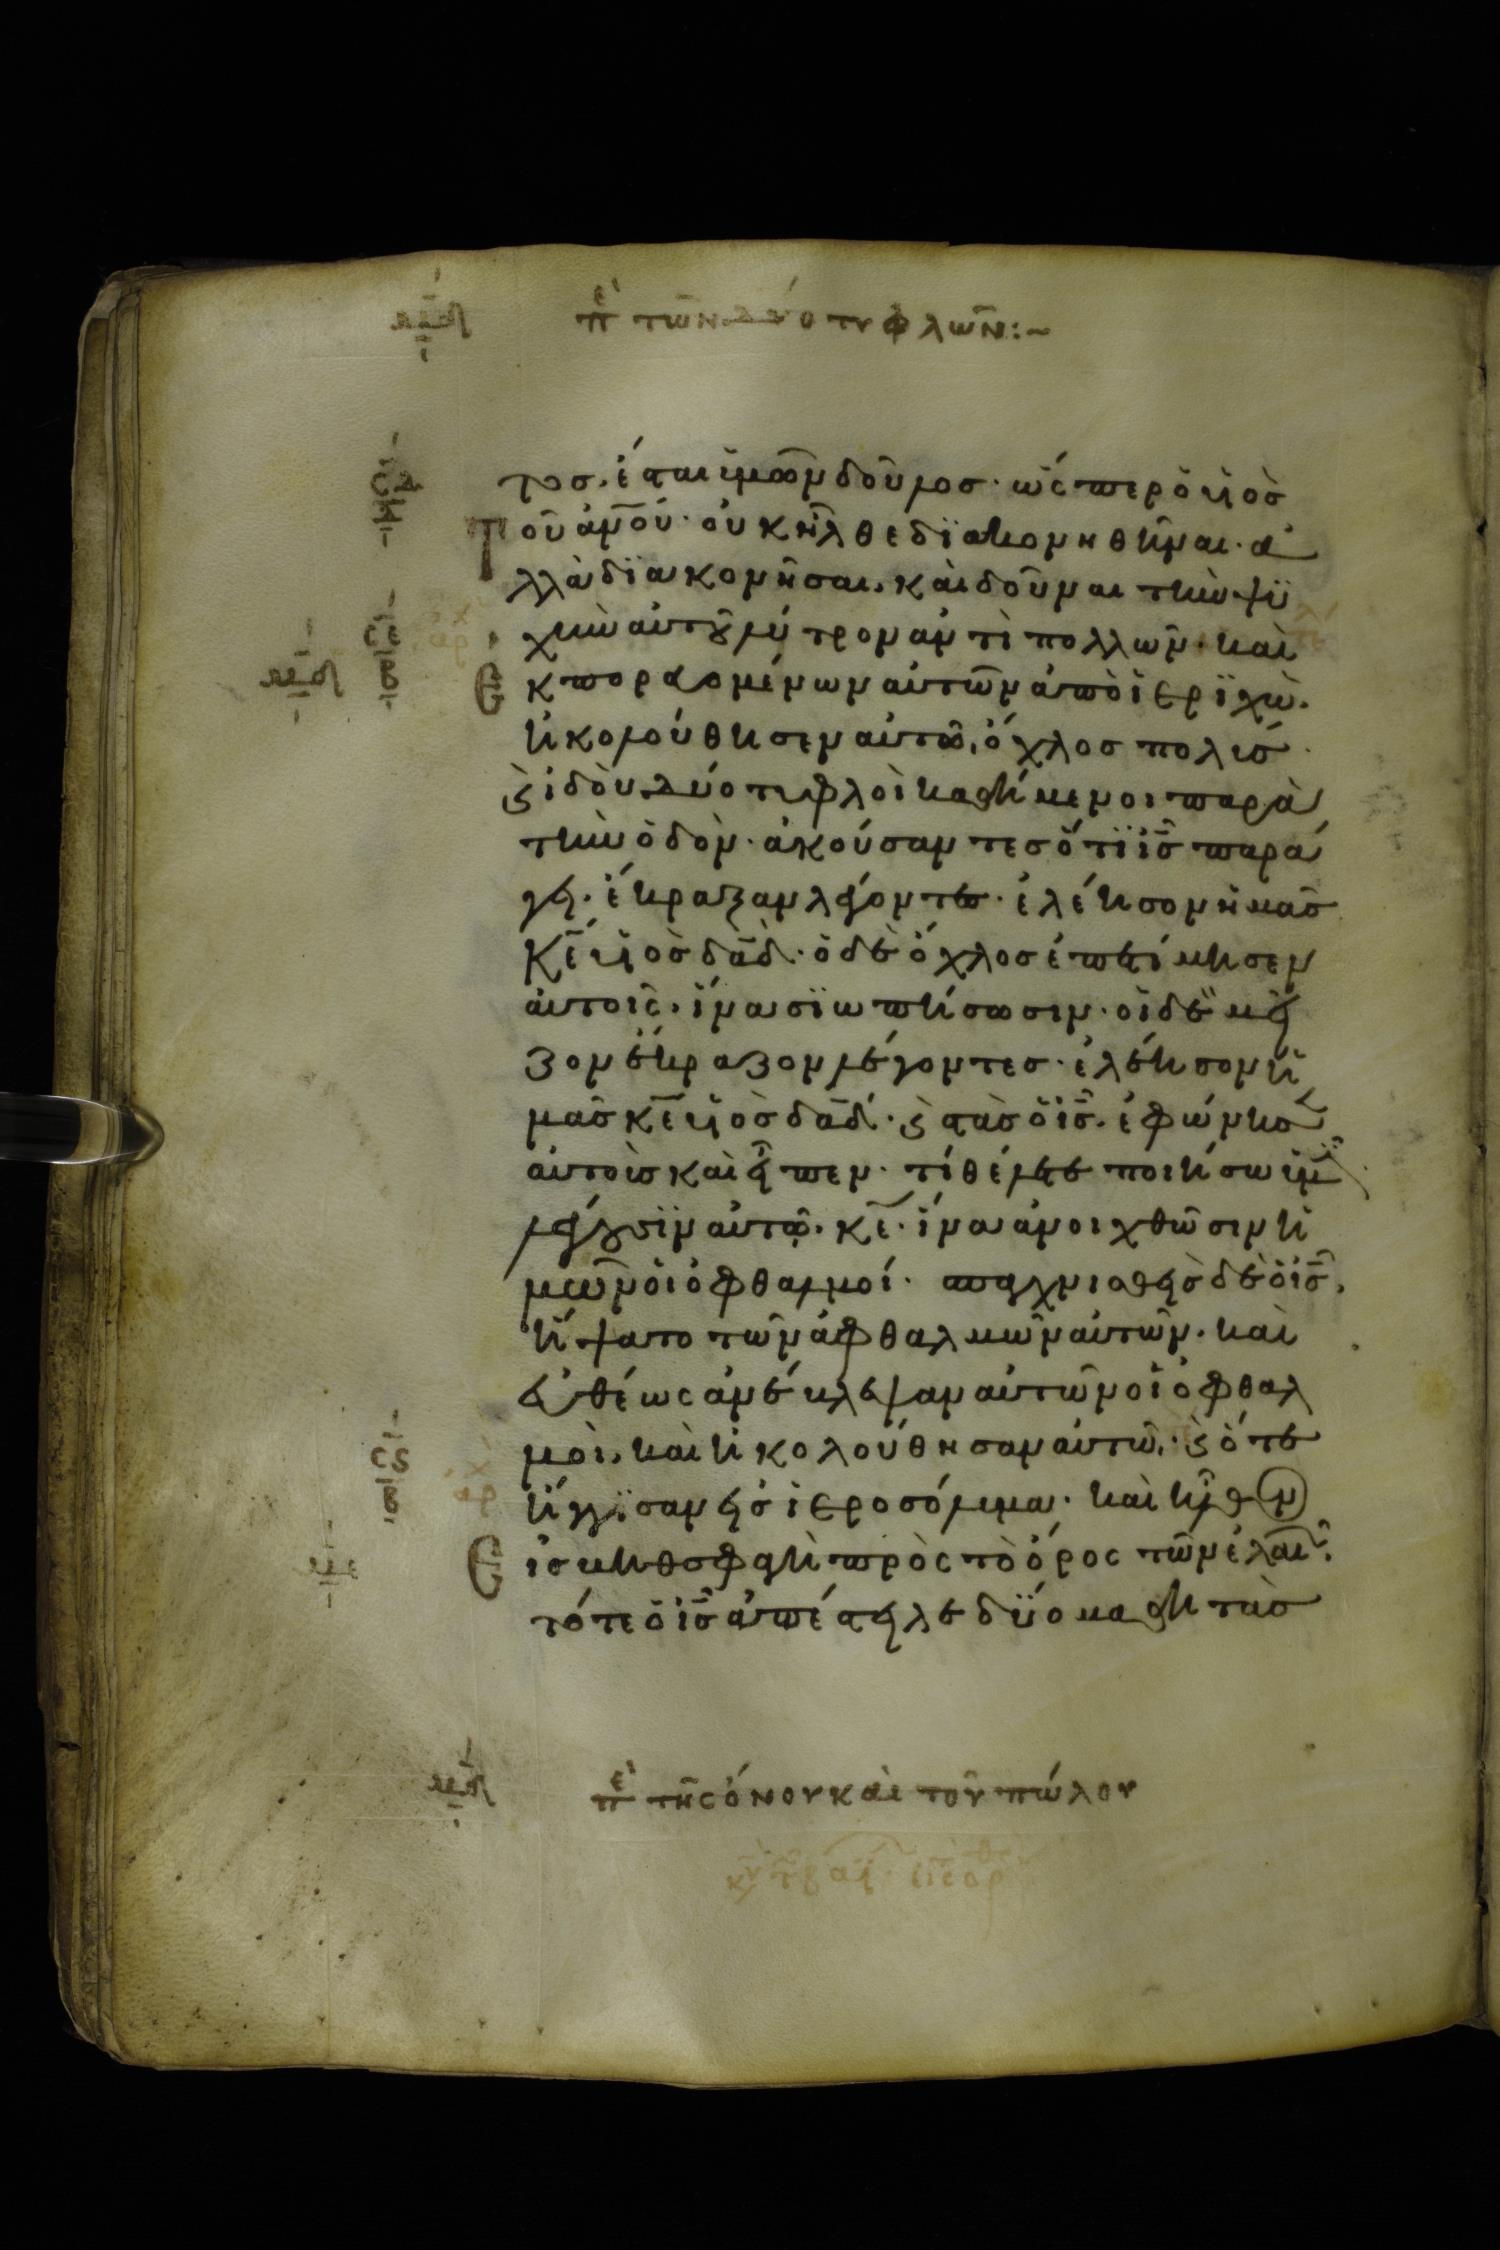 πε τῶν δύο τυφλῶν:~
τος. ἔσται ὑμῶν δοῦλος· ὥσπερ ὁ υἱὸς
τοῦ ἀνου· οὐκ ἦλθε διακονηθῆναι· ἀ
λλὰ διακονῆσαι. καὶ δοῦναι τὴν ψυ
χὴν αὐτοῦ λύτρον ἀντὶ πολλῶν· καὶ
ἐκπορευομένων αὐτῶν ἀπὸ ἱεριχὼ.
ἠκολούθησεν αὐτῶ, ὄχλος πολύς·
ϗ ἰδοὺ δύο τυφλοὶ καθήμενοι παρὰ
τὴν ὁδὸν· ἀκούσαντες ὅτι ις παρά
γει· ἔκραξαν λέγοντες· ἐλέησον ἡμᾶς
κε υἱὸς δαδ· ὁ δὲ ὄχλος ἐπετίμησεν
αὐτοῖς. ἵνα σιωπήσωσιν· οἱ δὲ μεῖ
ζον ἔκραζον λέγοντες· ἐλέησον ἡ
μᾶς κε υἱὸς δαδ· ϗ στὰς ὁ ις. ἐφώνησεν
αὐτοὺς καὶ εἶπεν· τί θέλετε ποιήσω ὑμῖν
λέγουσιν αὐτῶ. κε. ἵνα ἀνοιχθῶσιν ἡ
μῶν οἱ ὀφθαλμοί· σπλαχνισθεὶς δὲ ὁ ις.
ἥψατο τῶν ὀφθαλμῶν αὐτῶν· καὶ
εὐθέως ἀνέβλεψαν αὐτῶν οἱ ὀφθαλ
μοὶ. καὶ ἠκολούθησαν αὐτῶ· ϗ ὅτε
ἤγγισαν εἰς ἱεροσόλυμα· καὶ ἦλθον
εἰς βηθσφαγὴ πρὸς τὸ ὄρος τῶν ἐλαιῶν.
τότε ὁ ις ἀπέστειλε δύο μαθητὰς
πε τῆς ὄνου καὶ τοῦ πώλου